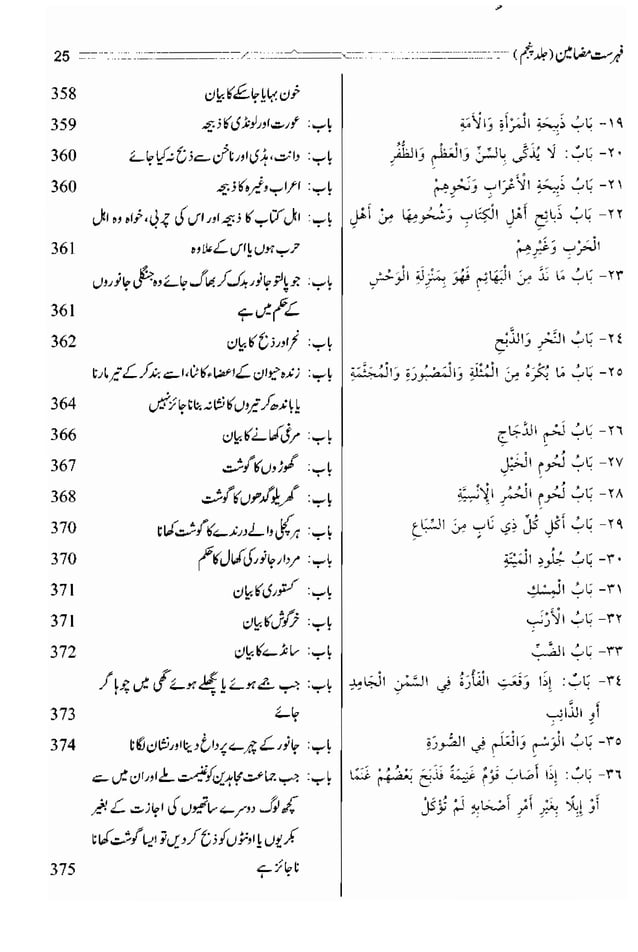 فہرست مضامین (جلد پنجم) 25
خون بہایا جاسکے کا بیان 358
١٩- بَابُ ذَبِيحَةِ الْمَرْأَةِ وَالْأَمَةِ باب: عورت اور لونڈی کا ذبیحہ 359
٢٠- بَابٌ: لَا يُذَكَّى بِالسِّنِّ وَالْعَظْمِ وَالظُّفُرِ باب: دانت، ہڈی اور ناخن سے ذبح نہ کیا جائے 360
٢١- بَابُ ذَبِيحَةِ الْأَعْرَابِ وَنَحْوِهِمْ باب: اعراب وغیرہ کا ذبیحہ 360
٢٢- بَابُ ذَبَائِحِ أَهْلِ الْكِتَابِ وَشُحُومِهَا مِنْ أَهْلِ باب: اہل کتاب کا ذبیحہ اور اس کی چربی، خواہ وہ اہل
الْحَرْبِ وَغَيْرِهِمْ حرب ہوں یا اس کے علاوہ 361
٢٣- بَابُ مَا نَدَّ مِنَ الْبَهَائِمِ فَهُوَ بِمَنْزِلَةِ الْوَحْشِ باب: جو پالتو جانور بدک کر بھاگ جائے وہ جنگلی جانوروں
کے حکم میں ہے 361
٢٤- بَابُ النَّحْرِ وَالذَّبْحِ باب: نحر اور ذبح کا بیان 362
٢٥- بَابُ مَا يُكْرَهُ مِنَ الْمُثْلَةِ وَالْمَصْبُورَةِ وَالْمُجَثَّمَةِ باب: زندہ حیوان کے اعضاء کاٹنا، اسے بند کر کے تیر مارنا
یا باندھ کر تیروں کا نشانہ بنانا جائز نہیں 364
٢٦- بَابُ لَحْمِ الدَّجَاجِ باب: مرغی کھانے کا بیان 366
٢٧- بَابُ لُحُومِ الْخَيْلِ باب: گھوڑوں کا گوشت 367
٢٨- بَابُ لُحُومِ الْحُمُرِ الْإِنْسِيَّةِ باب: گھریلو گدھوں کا گوشت 368
٢٩- بَابُ أَكْلِ كُلِّ ذِي نَابٍ مِنَ السِّبَاعِ باب: ہر کچلی والے درندے کا گوشت کھانا 370
٣٠- بَابُ جُلُودِ الْمَيْتَةِ باب: مردار جانور کی کھال کا حکم 370
٣١- بَابُ الْمِسْكِ باب: کستوری کا بیان 371
٣٢- بَابُ الْأَرْنَبِ باب: خرگوش کا بیان 371
٣٣- بَابُ الضَّبِّ باب: سانڈے کا بیان 372
٣٤- بَابٌ: إِذَا وَقَعَتِ الْفَأْرَةُ فِي السَّمْنِ الْجَامِدِ باب: جب جمے ہوئے یا پگھلے ہوئے گھی میں چوہا گر
أَوِ الذَّائِبِ جائے 373
٣٥- بَابُ الْوَسْمِ وَالْعَلَمِ فِي الصُّورَةِ باب: جانور کے چہرے پر داغ دینا اور نشان لگانا 374
٣٦- بَابٌ: إِذَا أَصَابَ قَوْمٌ غَنِيمَةً فَذَبَحَ بَعْضُهُمْ غَنَمًا باب: جب جماعت مجاہدین کو غنیمت ملے اور ان میں سے
أَوْ إِبِلًا بِغَيْرِ أَمْرِ أَصْحَابِهِ لَمْ تُؤْكَلْ کچھ لوگ دوسرے ساتھیوں کی اجازت کے بغیر
بکریوں یا اونٹوں کو ذبح کر دیں تو ایسا گوشت کھانا
ناجائز ہے 375